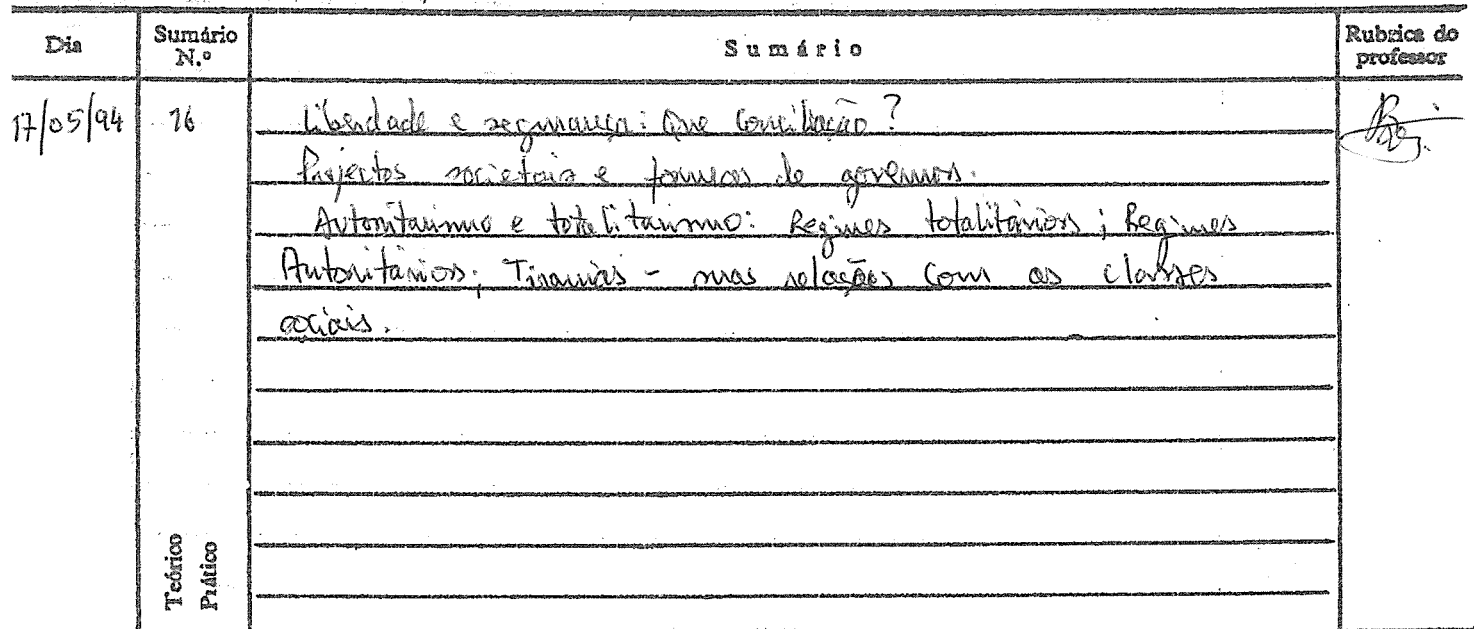 Dia Sumário N.º Sumário Rubrica do professor
17/05/94 16 Liberdade e segurança: Que conciliação?
Projectos societais e formas de governos.
Autoritarismo e totalitarismo: Regimes totalitários; Regimes
Autoritários; Tiranias - suas relações com as classes
sociais.
Teórico
Prático